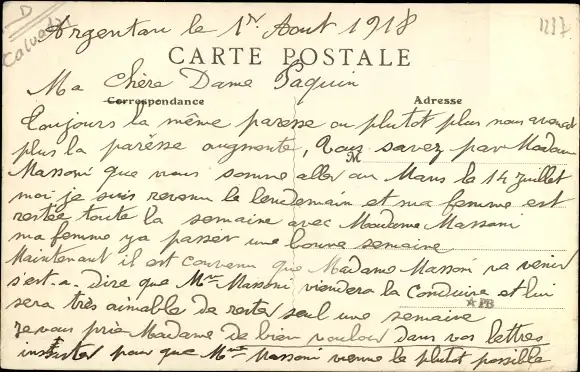 D
Calvados
1237
Argentan le 1er Aout 1918
CARTE POSTALE
Ma chère Dame Paquin
Correspondance
Adresse
Toujours la même paresse ou plutot plus nous avancons
plus la parèsse augmente, Vous savez par Madame
M
Massoni que nous somme aller au Mans le 14 Juillet
moi je suis revenu le lendemain et ma femme est
restée toute la semaine avec Madame Massoni
ma femme y a passer une bonne semaine
Maintenant il est convenu que Madame Massoni va venir
s'est-a-dire que Mr Massoni viendera la conduire et lui
sera très aimable de rester seul une semaine
PB
Je vous prie Madame de bien vouloir dans vos lettres
insister pour que Mme Massoni vienne le plutot possible